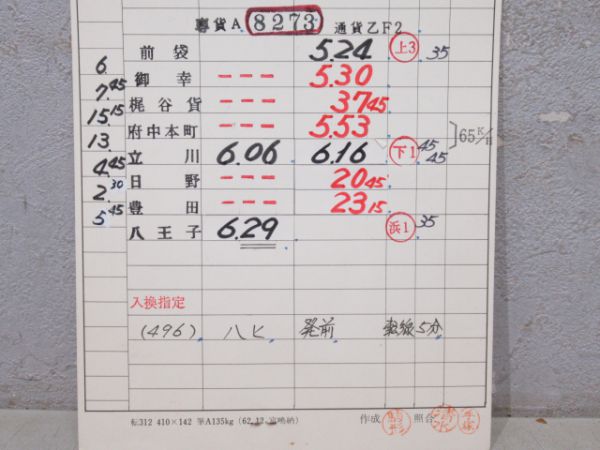 專貨A 8273 通貨乙F2
前袋 5.24 上3 35
6. 御幸 --- 5.30
7.45 梶谷貨 --- 37 45
15.15 府中本町 --- 5.53
13. 立川 6.06 6.16 下1 45 45 65K/H
4.45 日野 --- 20 45
2.30 豊田 --- 23 15
5.45 八王子 6.29 浜1 35
入換指定
(496) 八ヒ 発前 5分
転312 410×142 筆A135kg (62.12.
作成 照合